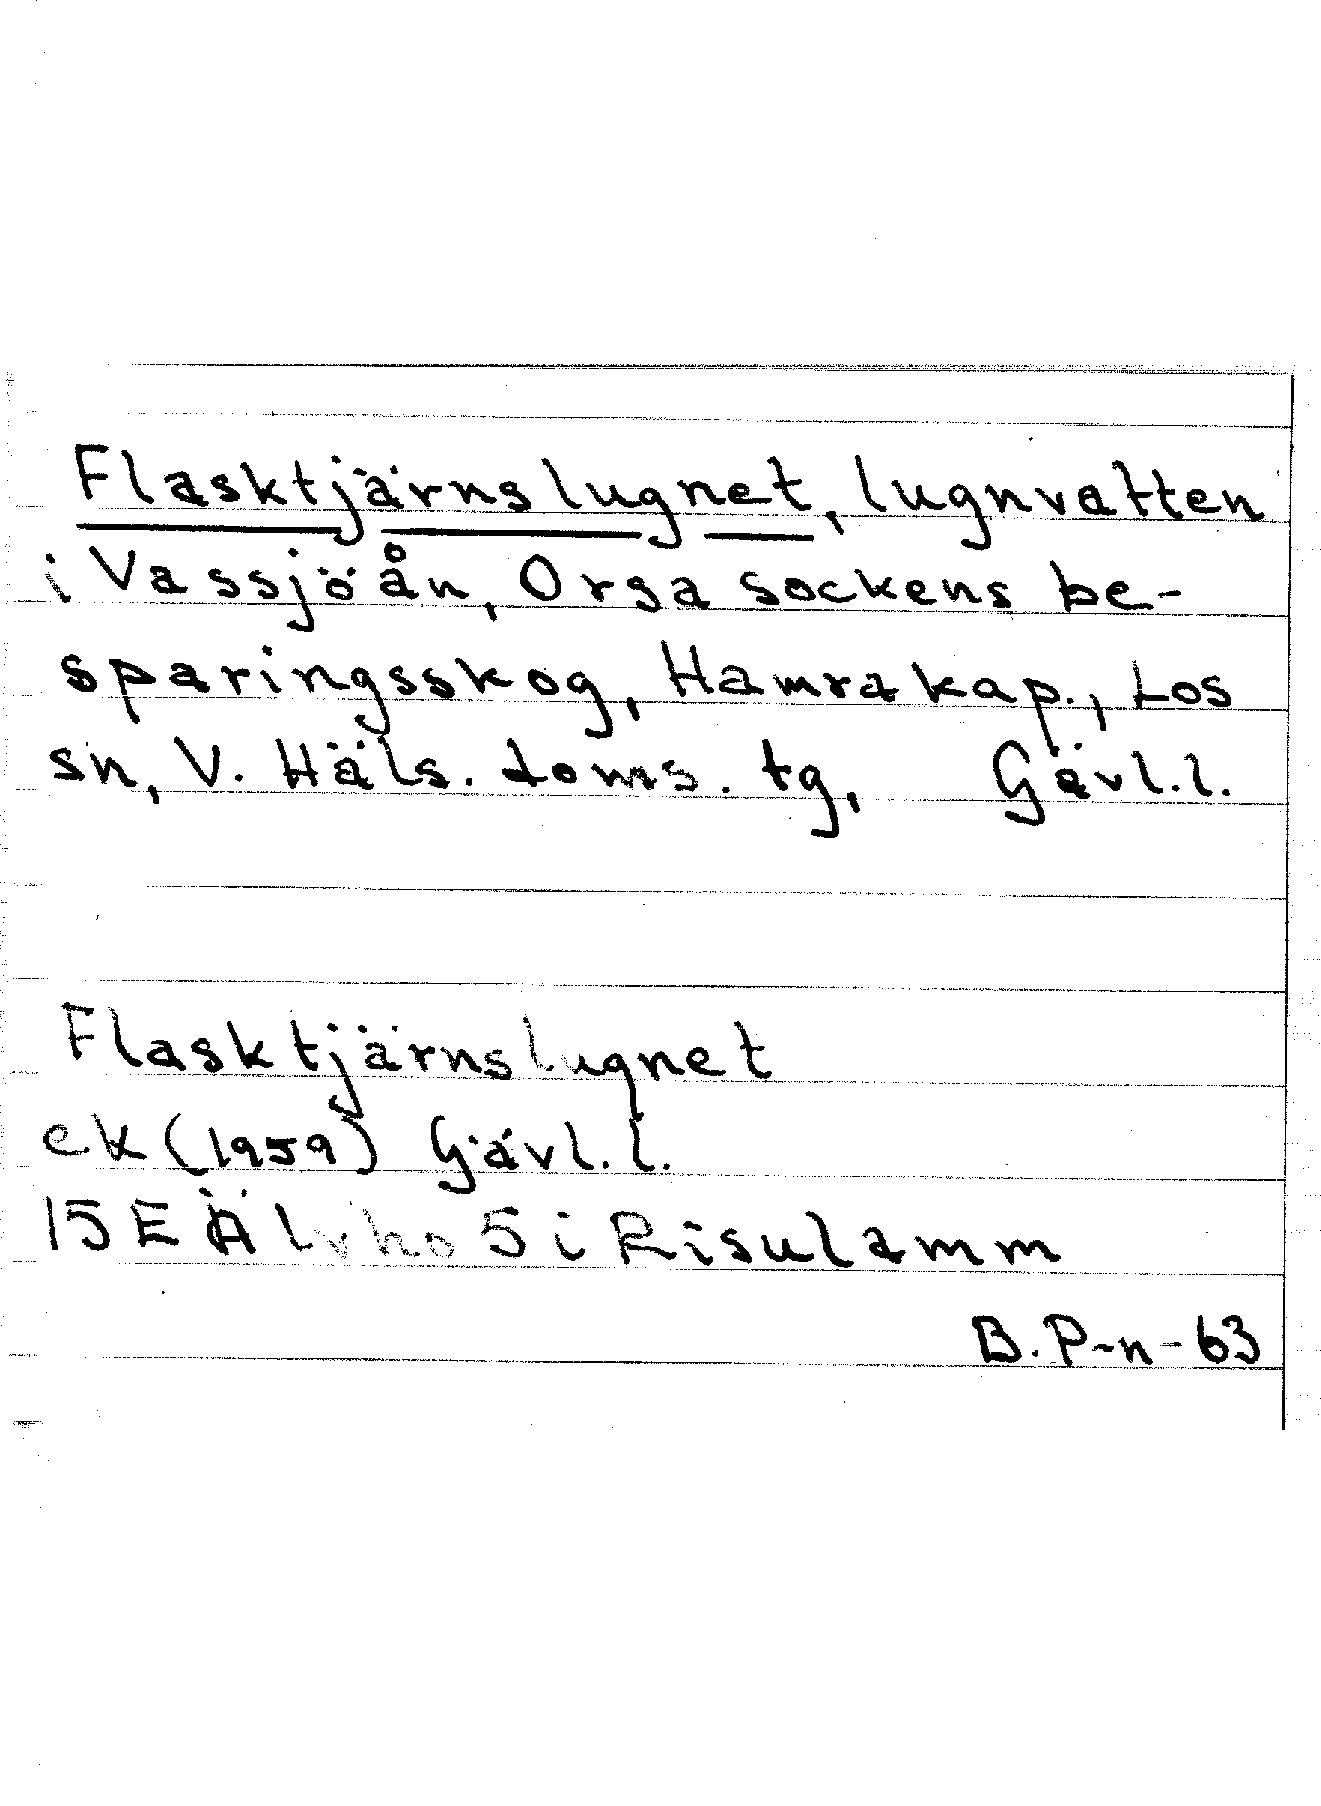 Flasktjärnslugnet, lugnvatten
i Vassjöån, Orsa sockens be-
sparingsskog, Hamra kap., Los
sn, V. Häls. doms. tg, Gävl.l.
Flasktjärnslugnet
ek (1959) Gävl.l.
15E Älvho 5i Risulamm
B. P-n-63